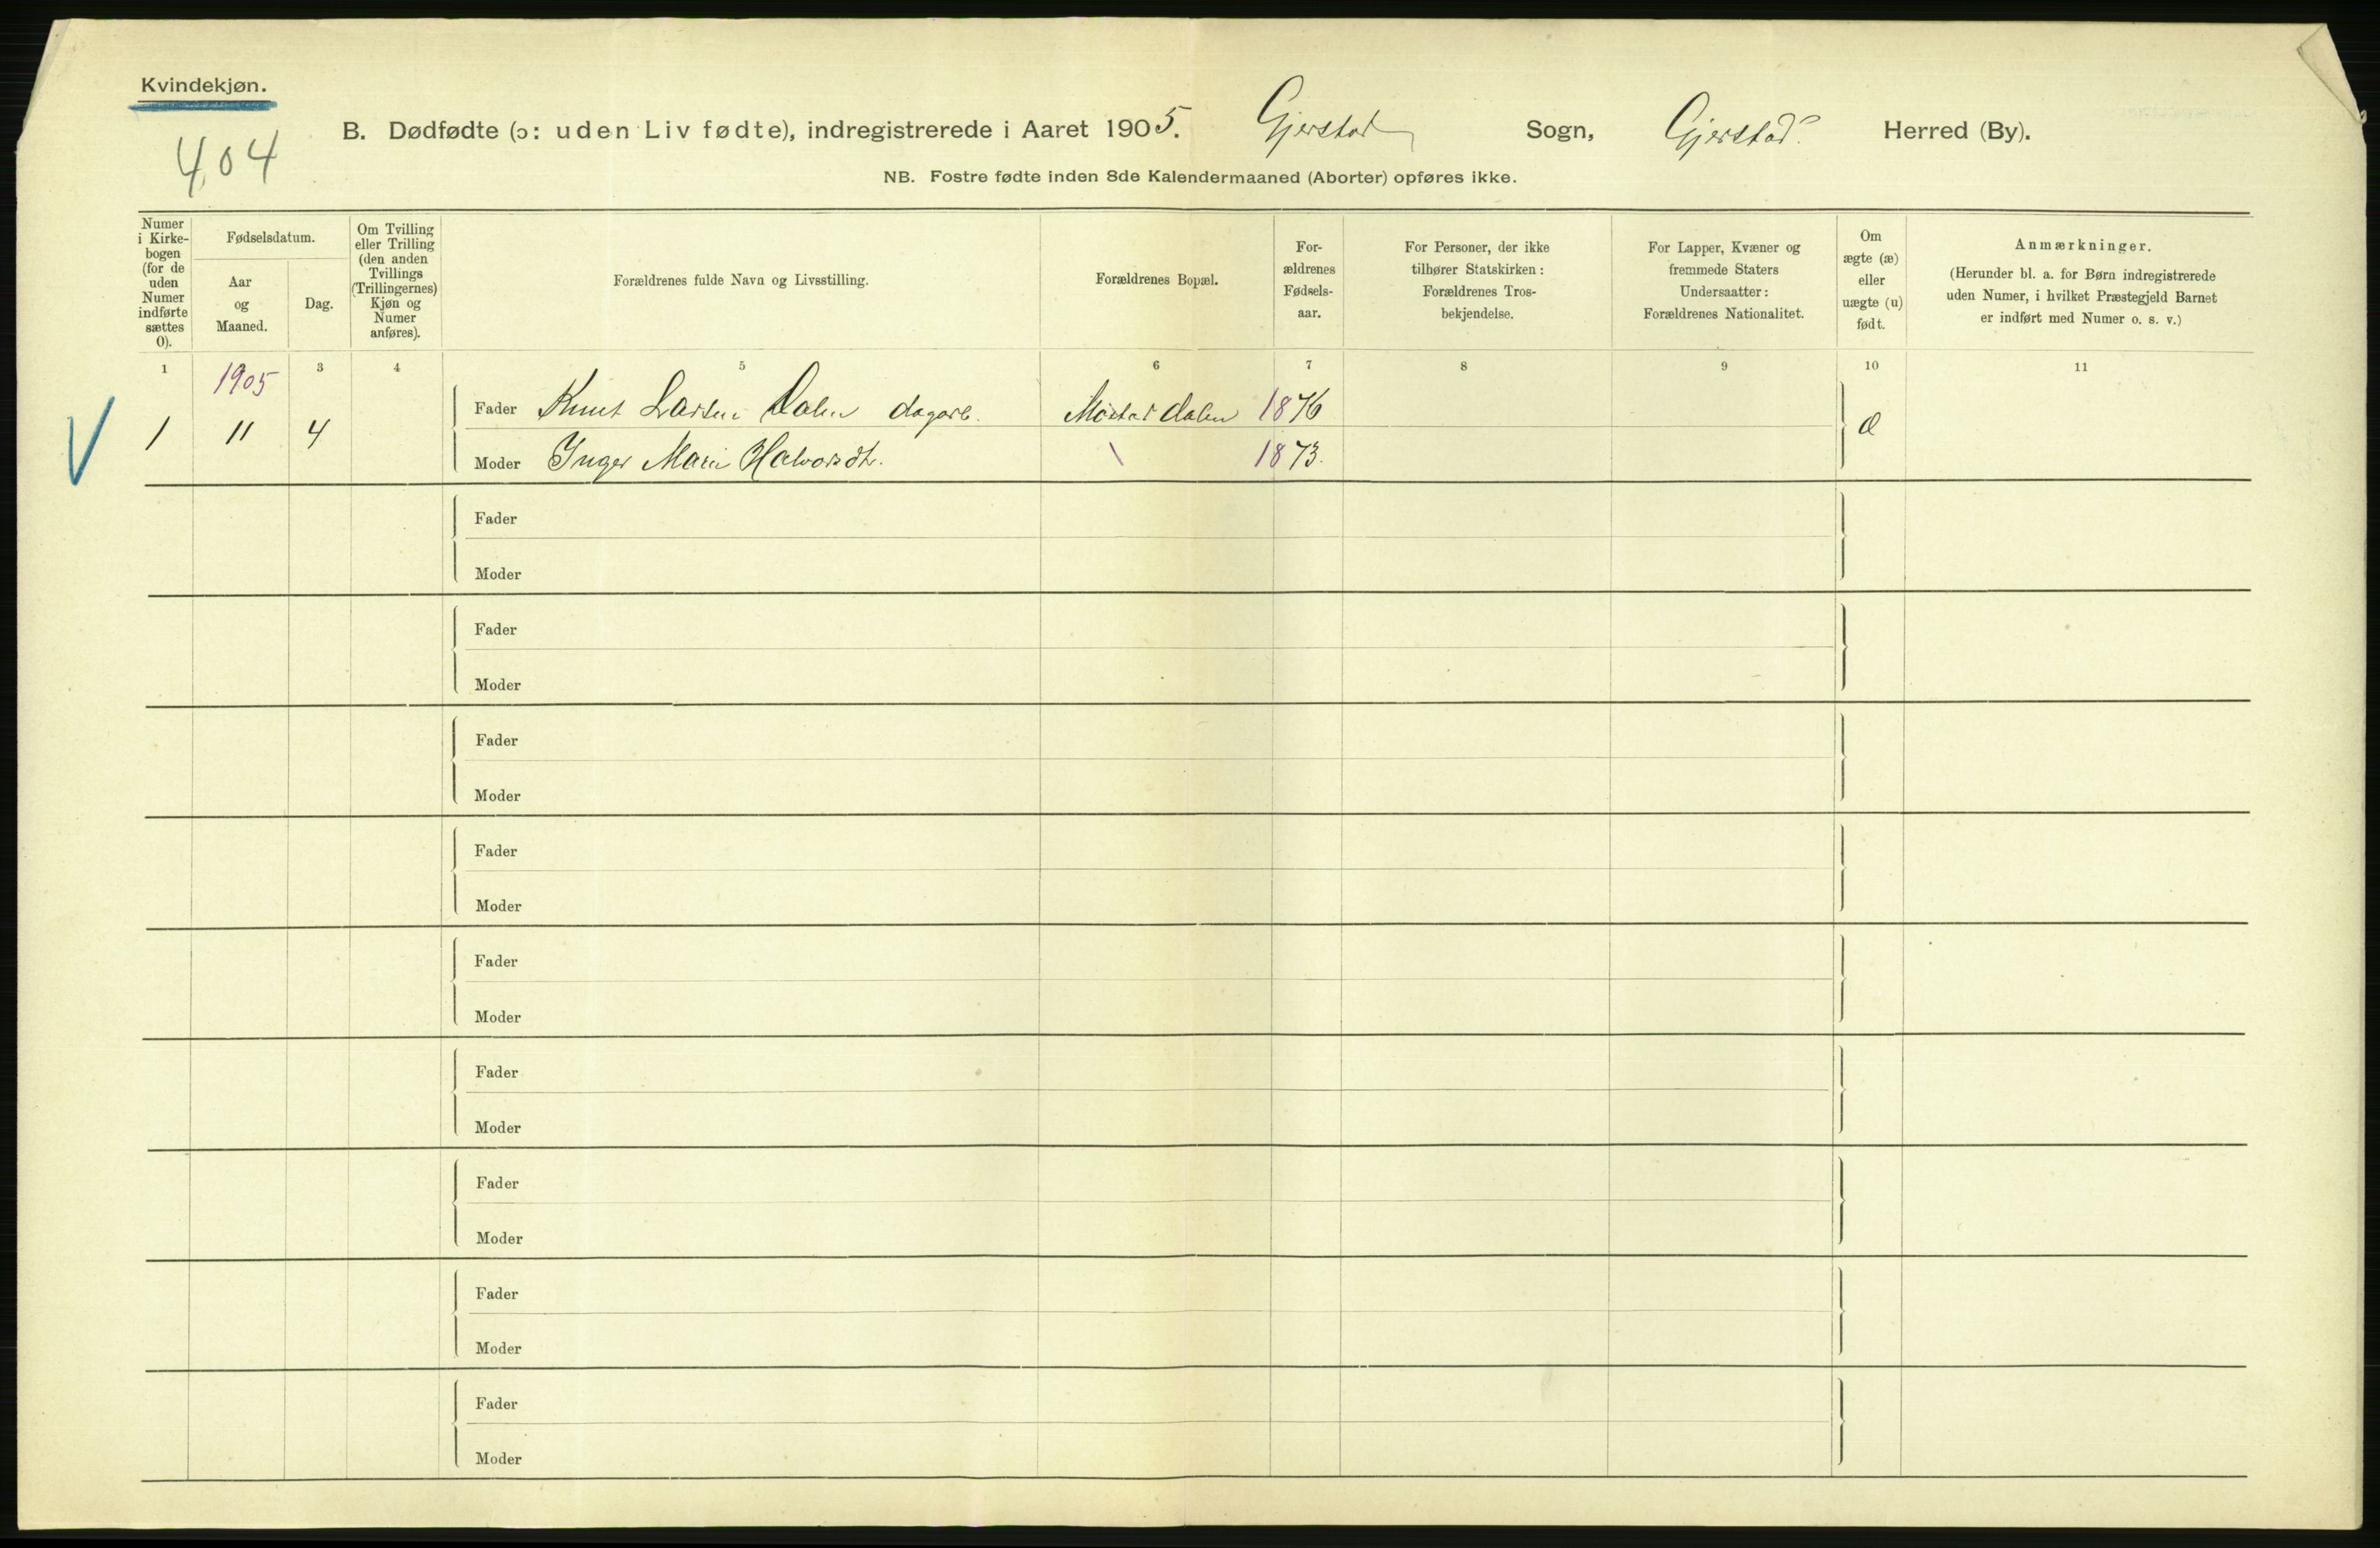 Kvindekjøn.
404
B. Dødfødte (ɔ: uden Liv fødte), indregistrerede i Aaret 1905. Gjerstad Sogn, Gjerstad Herred (By).
NB. Fostre fødte inden 8de Kalendermaaned (Aborter) opføres ikke.
Numer
i Kirke-
bogen
(for de
uden
Numer
indførte
sættes
0).
Fødselsdatum.
Aar
og
Maaned.
Dag.
Om Tvilling
eller Trilling
(den anden
Tvillings
(Trillingernes)
Kjøn og
Numer
anføres).
Forældrenes fulde Navn og Livsstilling.
Forældrenes Bopæl.
For-
ældrenes
Fødsels-
aar.
For Personer, der ikke
tilhører Statskirken:
Forældrenes Tros-
bekjendelse.
For Lapper, Kvæner og
fremmede Staters
Undersaatter:
Forældrenes Nationalitet.
Om
ægte (æ)
eller
uægte (u)
født.
Anmærkninger.
(Herunder bl. a. for Børn indregistrerede
uden Numer, i hvilket Præstegjeld Barnet
er indført med Numer o. s. v.)
1 3 4 5 6 7 8 9 10 11
1905
V 1 11 4
Fader Knut Larsen Dalen dagarb. dalen 1876
Moder Inger Marie Halvorsdt. \ 1873.
Fader
Moder
Fader
Moder
Fader
Moder
Fader
Moder
Fader
Moder
Fader
Moder
Fader
Moder
Fader
Moder
Fader
Moder